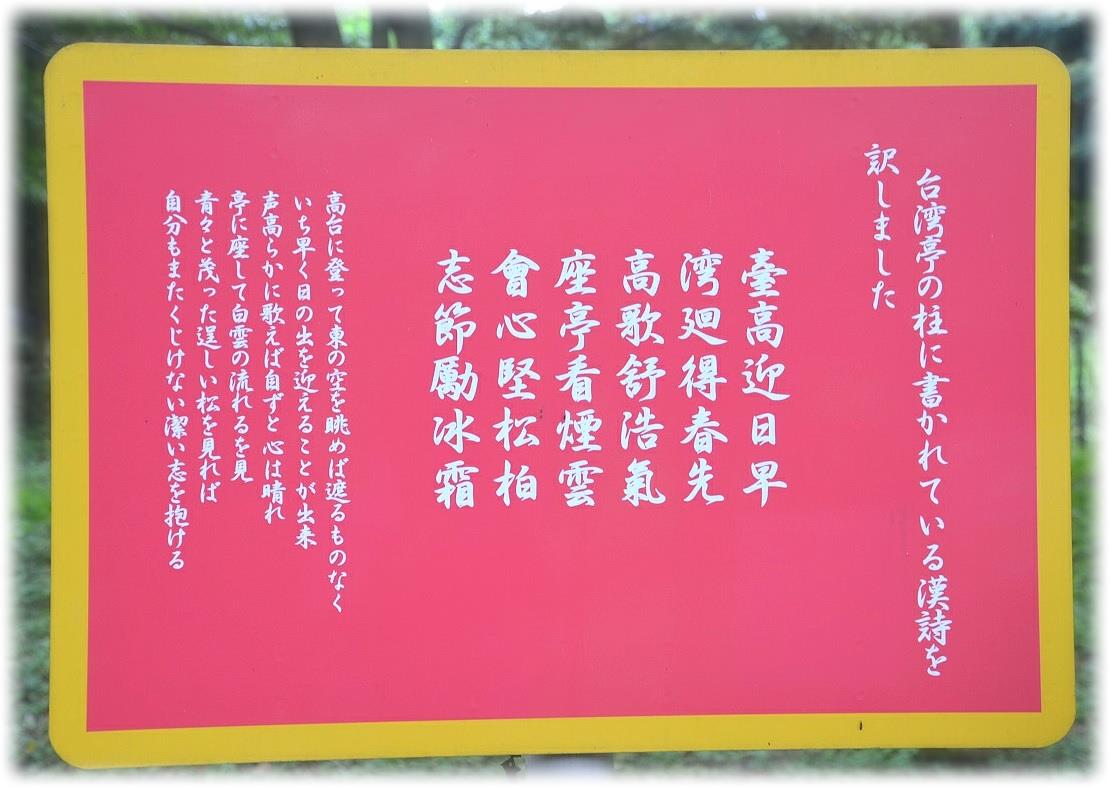 台湾亭の柱に書かれている漢詩を
訳しました
臺高迎日早
湾廻得春先
高歌舒浩氣
座亭看煙雲
會心堅松柏
志節勵冰霜
高台に登って東の空を眺めば遮るものなく
いち早く日の出を迎えることが出来
声高らかに歌えば自ずと心は晴れ
亭に座して白雲の流れるを見
青々と茂った逞しい松を見れば
自分もまたくじけない潔い志を抱ける